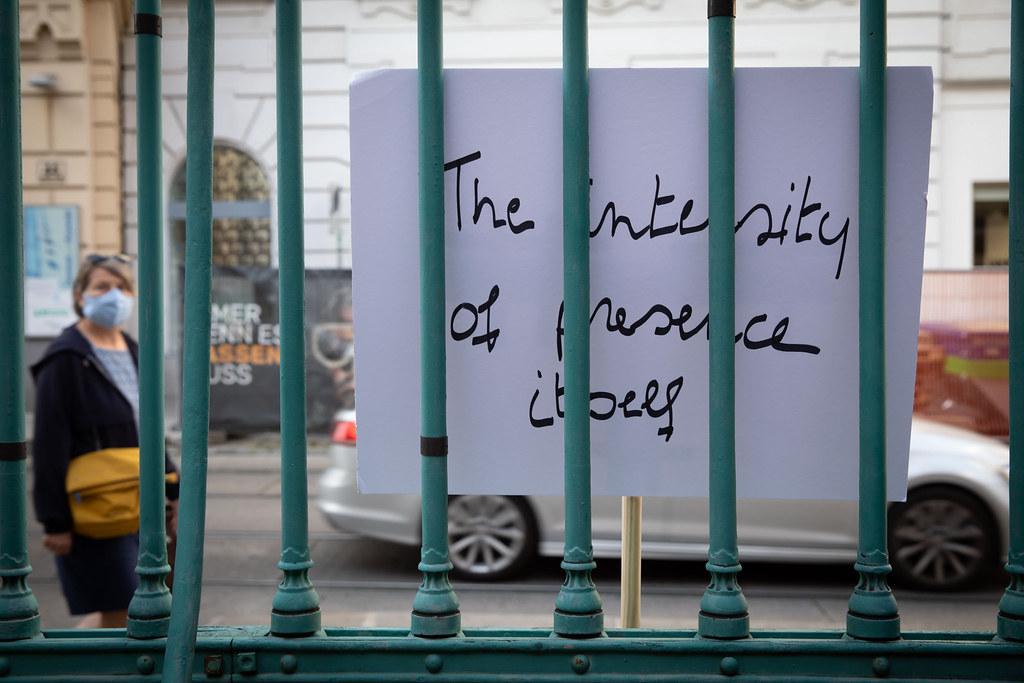 The intensity
of presence
itself
MER
ENN ES
ASSEN
USS